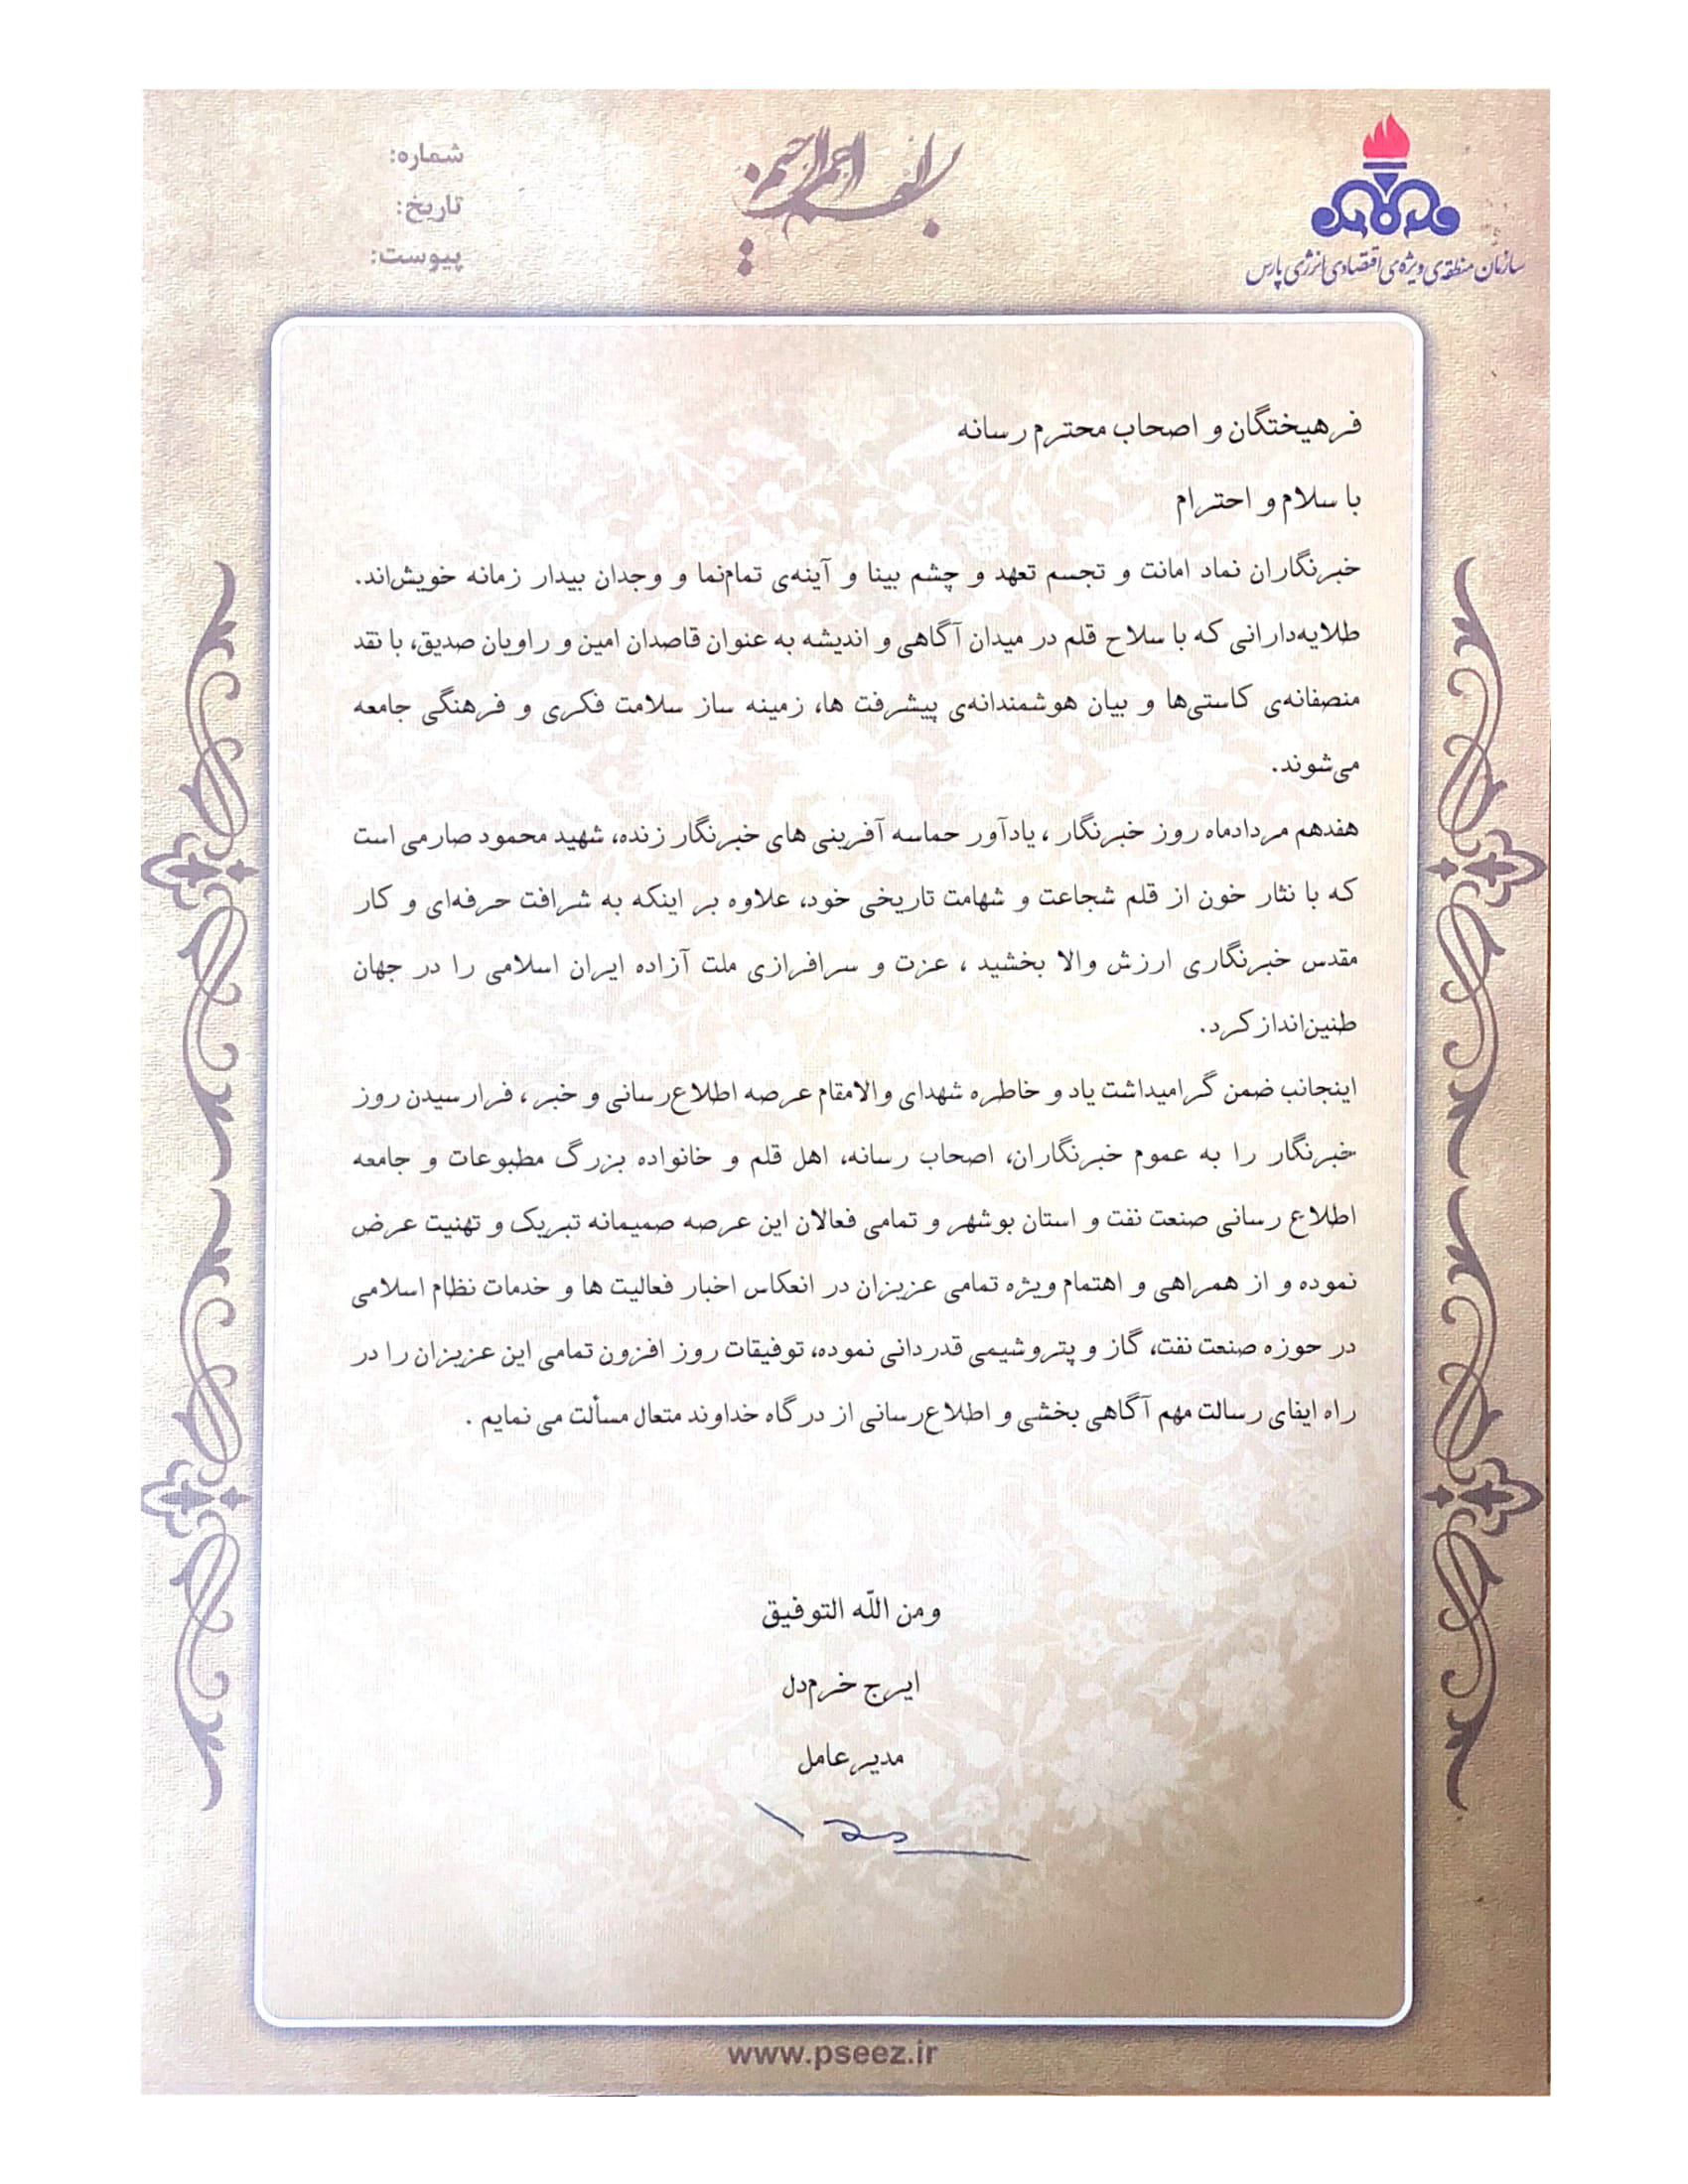 بسم الله الرحمن الرحیم
سازمان منطقه‌ی ویژه‌ی اقتصادی انرژی پارس
شماره:
تاریخ:
پیوست:
فرهیختگان و اصحاب محترم رسانه
با سلام و احترام
خبرنگاران نماد امانت و تجسم تعهد و چشم بینا و آینه‌ی تمام‌نما و وجدان بیدار زمانه خویش‌اند.
طلایه‌دارانی که با سلاح قلم در میدان آگاهی و اندیشه به عنوان قاصدان امین و راویان صدیق، با نقد
منصفانه‌ی کاستی‌ها و بیان هوشمندانه‌ی پیشرفت ها، زمینه ساز سلامت فکری و فرهنگی جامعه
می‌شوند.
هفدهم مردادماه روز خبرنگار ، یادآور حماسه آفرینی های خبرنگار زنده، شهید محمود صارمی است
که با نثار خون از قلم شجاعت و شهامت تاریخی خود، علاوه بر اینکه به شرافت حرفه‌ای و کار
مقدس خبرنگاری ارزش والا بخشید ، عزت و سرافرازی ملت آزاده ایران اسلامی را در جهان
طنین‌انداز کرد.
اینجانب ضمن گرامیداشت یاد و خاطره شهدای والامقام عرصه اطلاع‌رسانی و خبر ، فرارسیدن روز
خبرنگار را به عموم خبرنگاران، اصحاب رسانه، اهل قلم و خانواده بزرگ مطبوعات و جامعه
اطلاع رسانی صنعت نفت و استان بوشهر و تمامی فعالان این عرصه صمیمانه تبریک و تهنیت عرض
نموده و از همراهی و اهتمام ویژه تمامی عزیزان در انعکاس اخبار فعالیت ها و خدمات نظام اسلامی
در حوزه صنعت نفت، گاز و پتروشیمی قدردانی نموده، توفیقات روز افزون تمامی این عزیزان را در
راه ایفای رسالت مهم آگاهی بخشی و اطلاع‌رسانی از درگاه خداوند متعال مسألت می نمایم .
ومن اللّه التوفیق
ایرج خرم‌دل
مدیرعامل
www.pseez.ir